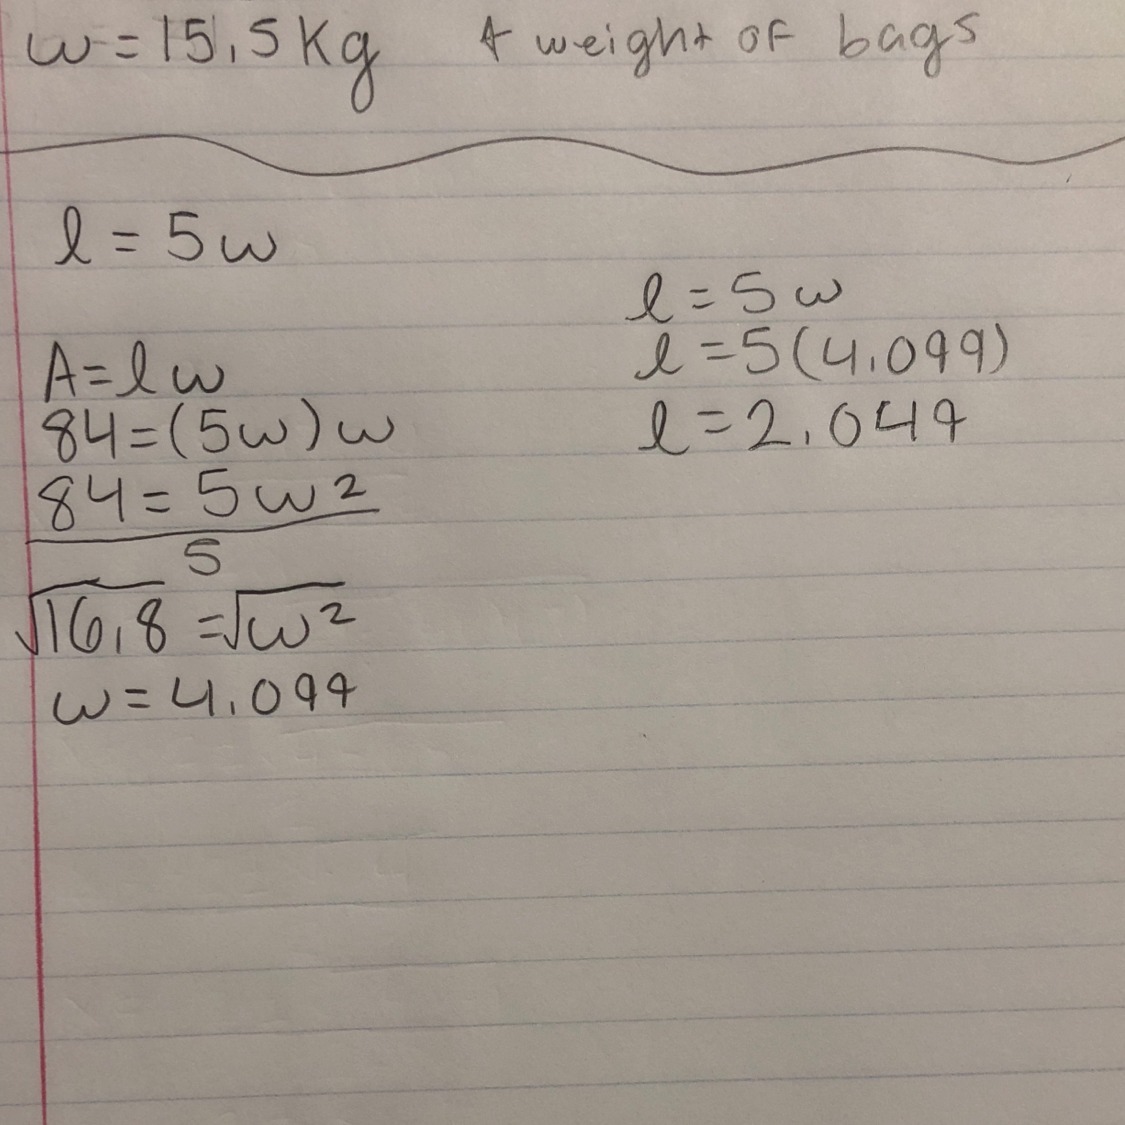 w = 15.5 kg ↑ weight of bags
l = 5w
A = lw
84 = (5w)w
84 = 5w²
5
√16.8 = √w²
w = 4.099
l = 5w
l = 5(4.099)
l = 2.049